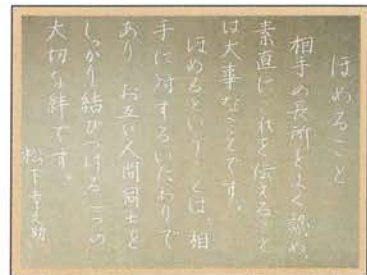 ほめること
相手の長所をよく認め、
素直にこれを伝えること
は大事なことです。
ほめるということは、相
手に対するいたわりで
あり、お互い人間同士を
しっかり結びつける一つの
大切な絆です。
松下幸之助